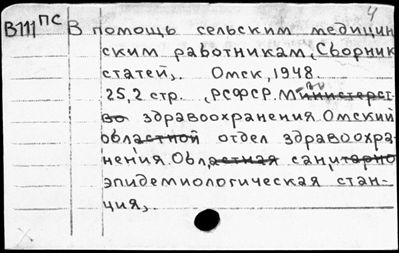 4
В111 ПС В помощь сельским медицин
ским работникам, Сборник
статей, Омск, 1948.
25,2 стр. (РСФСР. Министерст-
во здравоохранения. Омский
областной отдел здравоохра-
нения. Областная санитарно
эпидемиологическая стан-
ция),